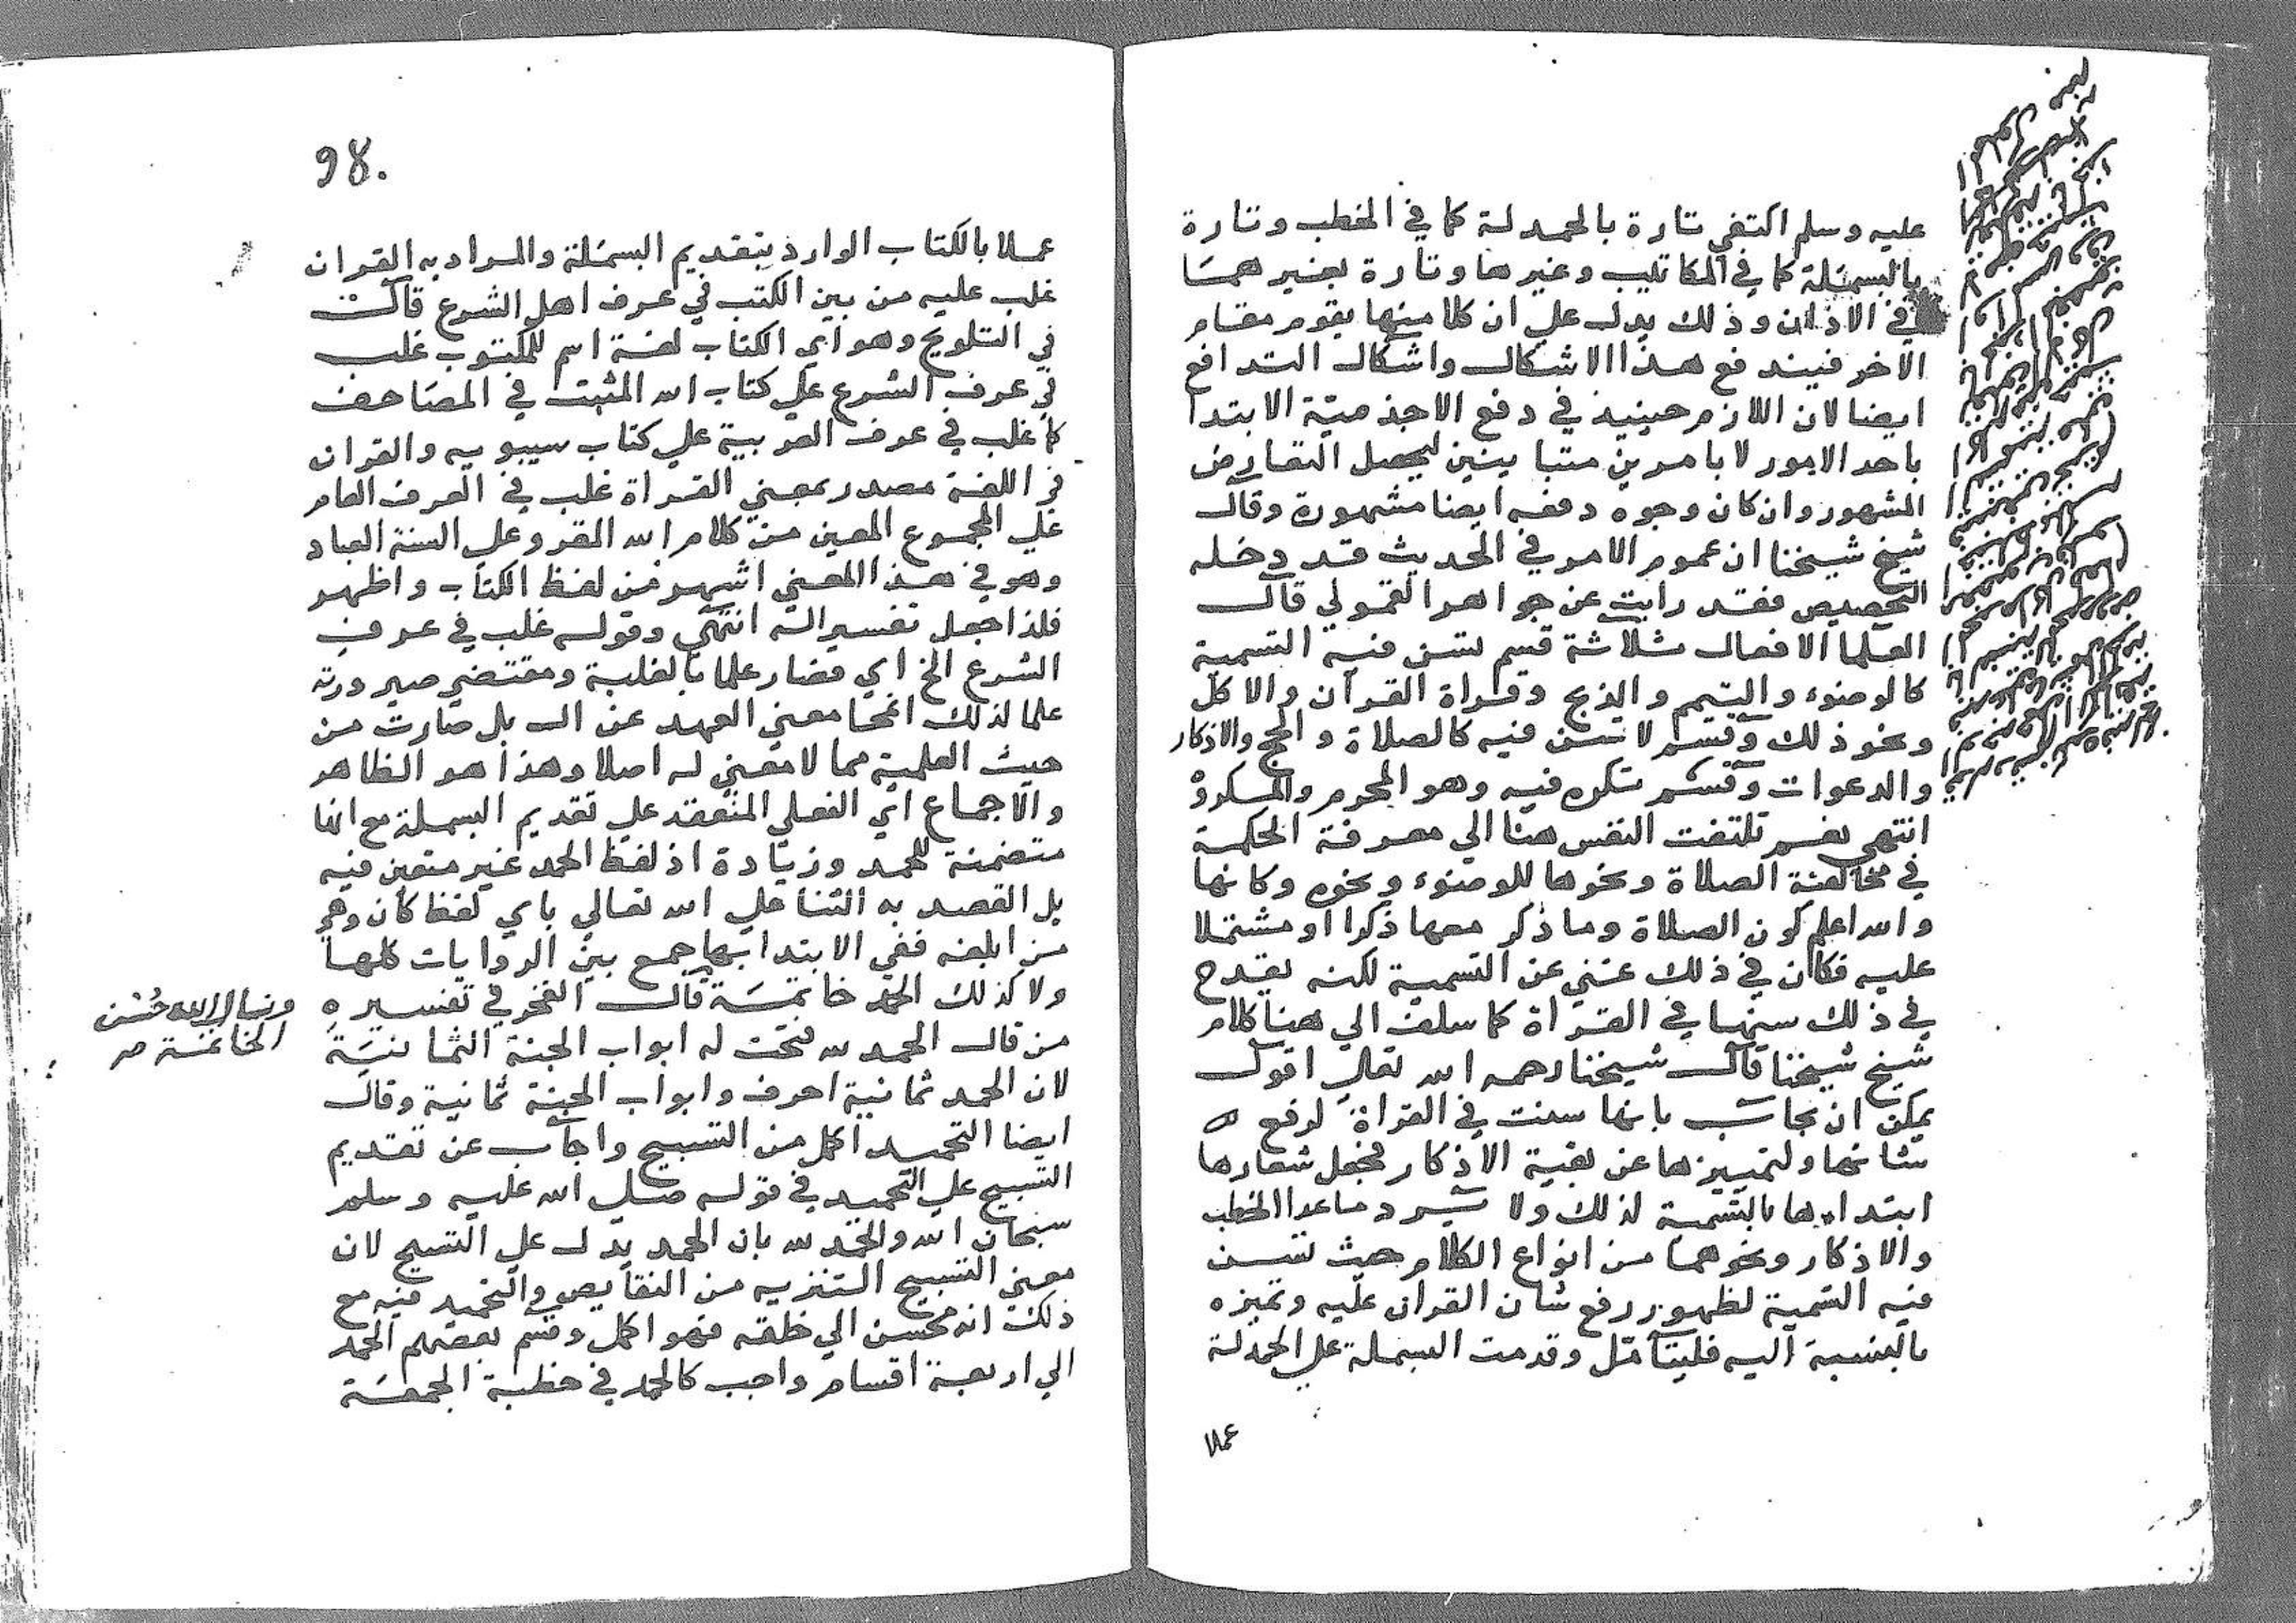 عليه وسلم اكتفي تارة بالحمد لة كما في الخطب وتارة
بالبسملة كما في المكاتيب وغيرها وتارة بغير همسا
في الاذان وذلك يدل علي ان كلا منها يقوم مقام
الاخر فيند فع هذا الاشكال واشكال التدافع
ايضا لان اللازم حينيذ في دفع الاجذمية الابتدا
باحد الامور لا بامرين متباينين ليحصل التعارض
المشهور وان كان وجوه دفعه ايضا مشهورة وقال
شيخ شيخنا ان عموم الامر في الحديث قد دخله
التخصيص فقد رايت عن جواهر القمولي قال
العلما الافعال ثلاثة قسم تسن فيه التسمية
كالوضوء والتيمم والذبح وقراة القرآن والاكل
ونحو ذلك وقسم لا تسن فيه كالصلاة والحج والاذكار
والدعوات وقسم تكره فيه وهو المحرم والمكروه
انتهي نعم تلتفت النفس هنا الي معرفة الحكمة
في مخالفة الصلاة ونحوها للوضوء ونحوه وكانها
والله اعلم كون الصلاة وما ذكر معها ذكرا او مشتملا
عليه فكان في ذلك غني عن التسمية لكنه يقدح
في ذلك سنها في القراة كما سلف الي هنا كلام
شيخ شيخنا قال شيخنا رحمه الله تعالي اقول
يمكن ان يجاب بانها سنت في القراة لرفع
شانها ولتمييزها عن بقية الاذكار فجعل شعارها
ابتداءها بالتسمية لذلك ولا يرد ماعدا الخطب
والاذكار ونحوهما من انواع الكلام حيث تسن
فيه التسمية لظهور رفع شان القران عليه وتميزه
بالنسبة اليه فليتامل وقدمت البسملة علي الحمدلة
عملا
98.
عملا بالكتاب الوارد بتقديم البسملة والمراد به القران
غلب عليه من بين الكتب في عرف اهل الشرع قال
في التلويح وهو اي الكتاب لغة اسم للمكتوب غلب
في عرف الشرع علي كتاب الله المثبت في المصاحف
كما غلب في عرف العربية علي كتاب سيبويه والقران
في اللغة مصدر بمعني القراة غلب في العرف العام
علي المجموع المعين من كلام الله المقرو علي السنة العباد
وهو في هذا المعني اشهر من لفظ الكتاب واظهر
فلذا جعل تفسيرا له انتهي وقوله غلب في عرف
الشرع الخ اي فصار علما بالغلبة ومقتضي صيرورته
علما لذلك انمحا معني العهد عن ال بل صارت من
حيث العلمية مما لا معني له اصلا وهذا هو الظاهر
والاجماع اي الفعلي المنعقد علي تقديم البسملة مع انها
متضمنة للحمد وزيادة اذ لفظ الحمد غير متعين فيه
بل القصد به الثنا علي الله تعالي باي لفظ كان وهي
من ابلغه ففي الابتدا بها جمع بين الروايات كلها
ولا كذلك الحمد خاتمة قال الفخر في تفسيره
من قال الحمد لله فتحت له ابواب الجنة الثمانية
لان الحمد ثمانية احرف وابواب الجنة ثمانية وقال
ايضا التحميد اكمل من التسبيح واجاب عن تقديم
التسبيح علي التحميد في قوله صلي الله عليه وسلم
سبحان الله والحمد لله بان الحمد يدل علي التسبيح لان
معني التسبيح التنزيه من النقايص والتحميد فيه مع
ذلك انه محسن الي خلقه فهو اكمل وقسم بعضهم الحمد
الي اربعة اقسام واجب كالحمد في خطبة الجمعة
ونسال الله حُسْن
الخاتمة صر